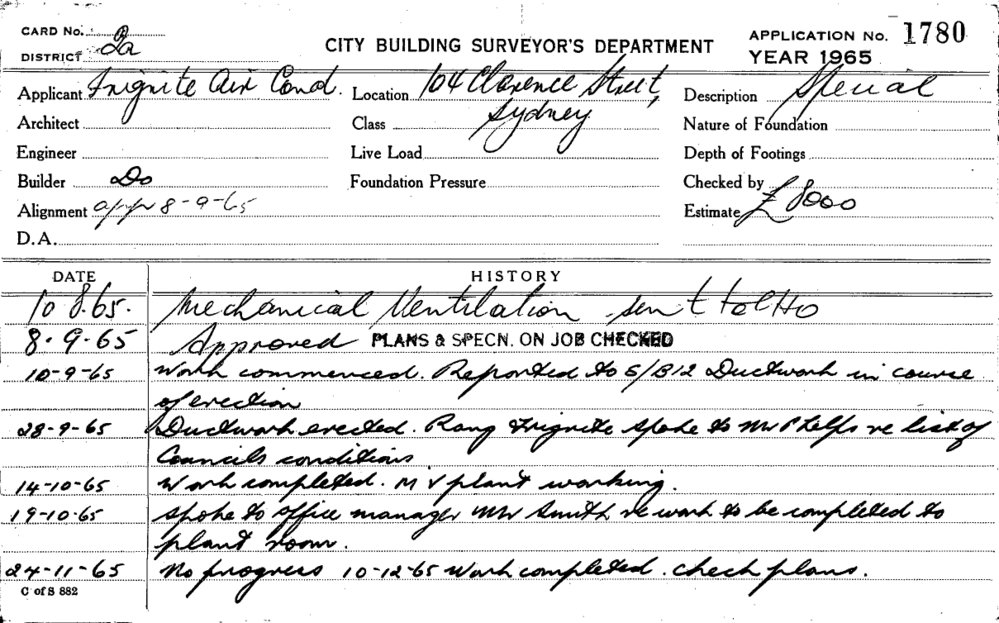 CARD No. 
DISTRICT 2a
CITY BUILDING SURVEYOR'S DEPARTMENT
APPLICATION No. 1780
YEAR 1965
Applicant Frignite Air Cond. Location 104 Clarence Street, Description Special
Architect Class Sydney Nature of Foundation
Engineer Live Load Depth of Footings
Builder Do Foundation Pressure Checked by
Alignment app 8-9-65 Estimate £ 8000
D.A.
DATE HISTORY
10 8.65. Mechanical Ventilation sent to
8.9.65 Approved PLANS & SPECN. ON JOB CHECKED
10-9-65 Work commenced. Reported to S/B12 Ductwork in course
of erection
28-9-65 Ductwork erected. Rang Frignite spoke to Mr Phelps re list of
Councils conditions
14-10-65 Work completed. M V plant working.
19-10-65 Spoke to office manager Mr Smith re work to be completed to
plant room.
24-11-65 No progress 10-12-65 Work completed. Check plans.
C of S 882